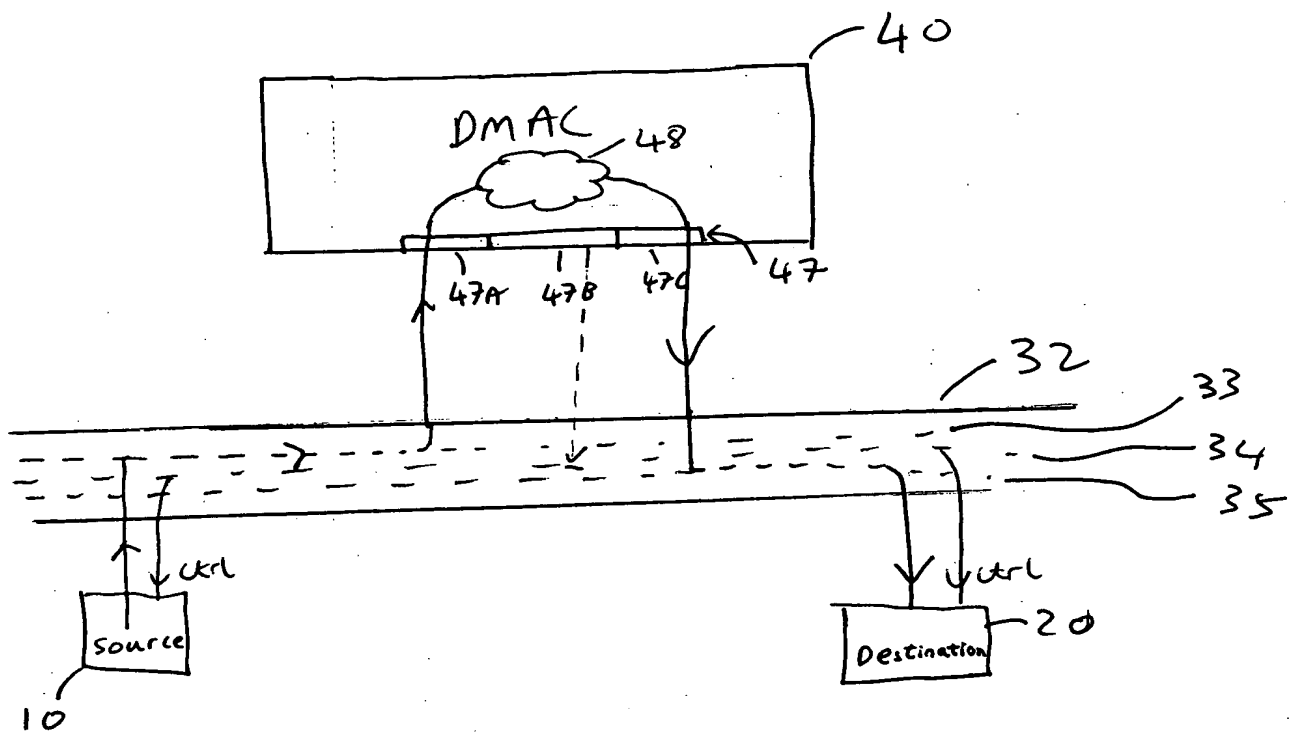 40
DMAC
48
47
47A
47B
47C
32
33
34
35
ctrl
ctrl
Source
Destination
20
10